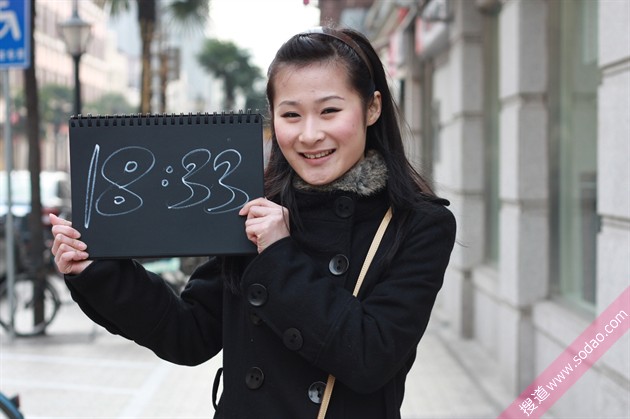 18:33
搜道 www.sodao.com